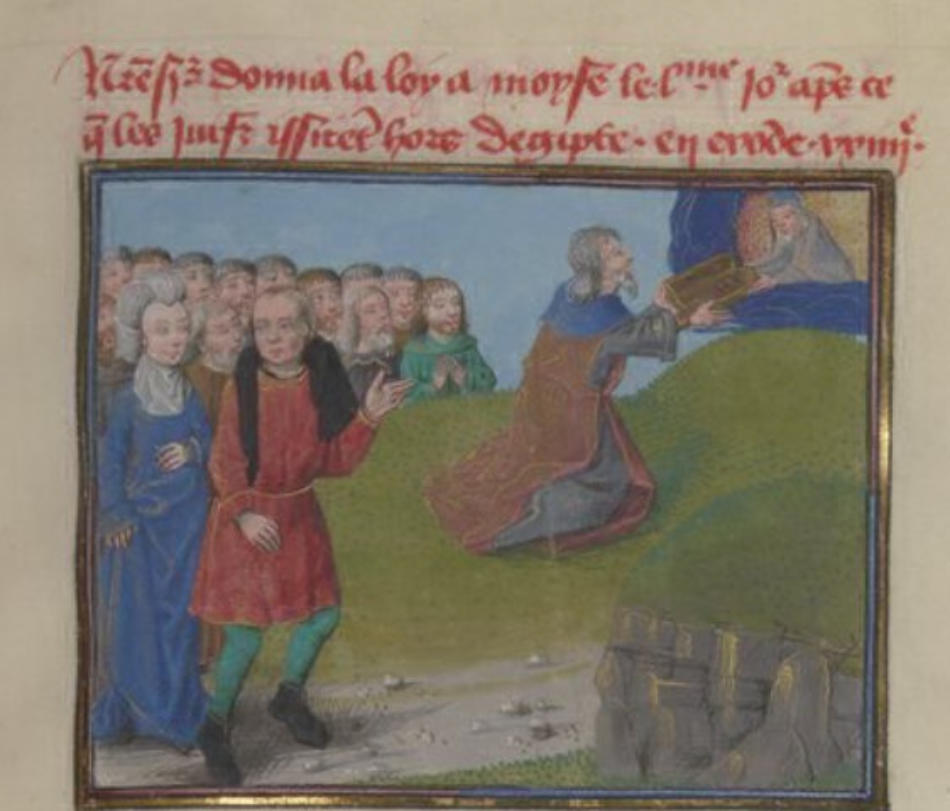 Nr̃e sr̃ donna la loy a moyse le .lme. jor apẽs ce
q̃ les juifz yssirẽt hors degipte. en exode .xxiiije.